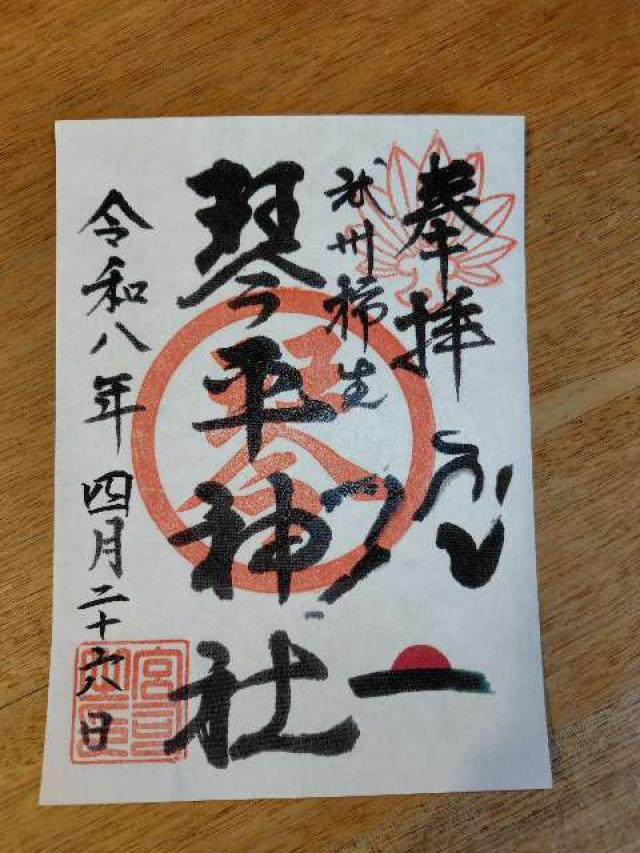 奉拝
武州柿生
琴平神社
令和八年四月二十六日
琴
宮司